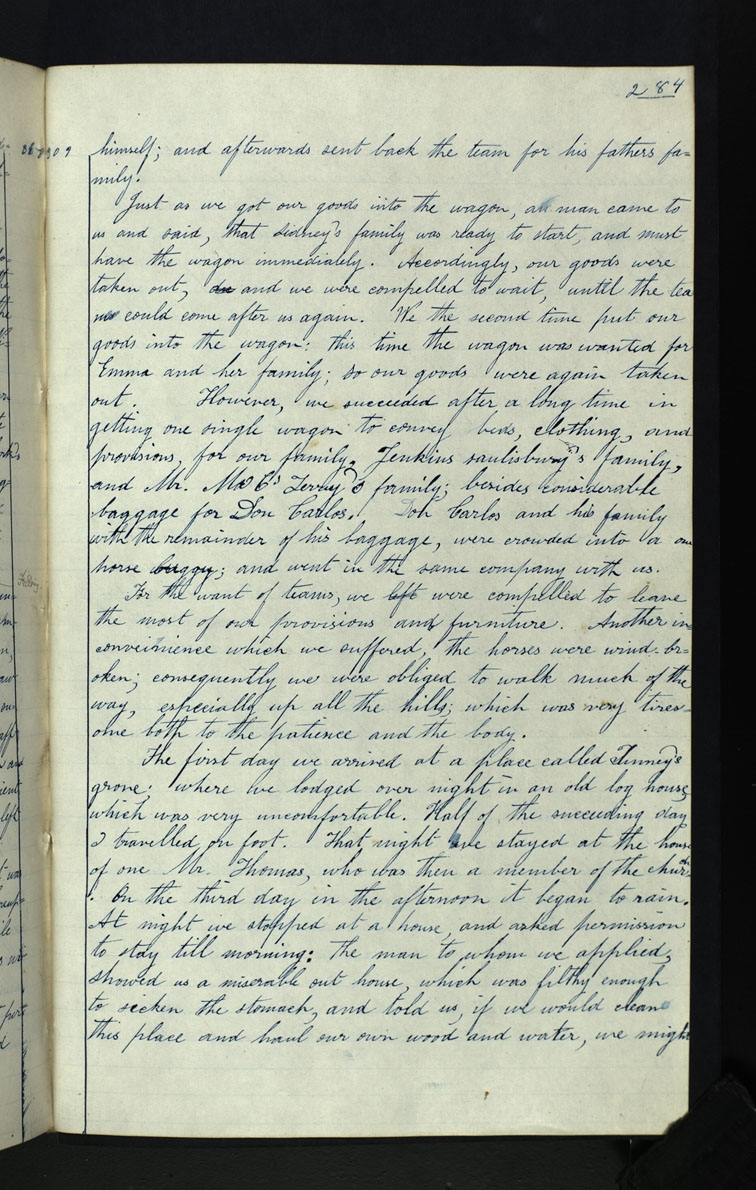 284
himself; and afterwards sent back the team for his fathers fa=
mily.
Just as we got our goods into the wagon, a man came to
us and said, that Sidney's family was ready to start, and must
have the wagon immediately. Accordingly, our goods were
taken out, and we were compelled to wait, until the tea
m could come after us again. We the second time put our
goods into the wagon: this time the wagon was wanted for
Emma and her family; so our goods were again taken
out. However, we succeeded after a long time in
getting one single wagon to convey beds, clothing, and
provisions, for our family, Jenkins saulisbury's family,
and Mr. Mc C's Lerry's family; besides considerable
baggage for Don Carlos. Don Carlos and his family
with the remainder of his baggage, were crowded into a one
horse buggy; and went in the same company with us.
For the want of teams, we left were compelled to leave
the most of our provisions and furniture. Another in=
convenience which we suffered, the horses were wind-br=
oken; consequently we were obliged to walk much of the
way, especially up all the hills; which was very tires=
ome both to the patience and the body.
The first day we arrived at a place called Tinney's
grove; where we lodged over night in an old log house,
which was very uncomfortable. Half of the succeeding day
I travelled on foot. That night we stayed at the house
of one Mr. Thomas, who was then a member of the church
. On the third day in the afternoon it began to rain.
At night we stopped at a house, and asked permission
to stay till morning: The man to whom we applied,
showed us a miserable out house, which was filthy enough
to sicken the stomach, and told us, if we would clean
this place and haul our own wood and water, we might